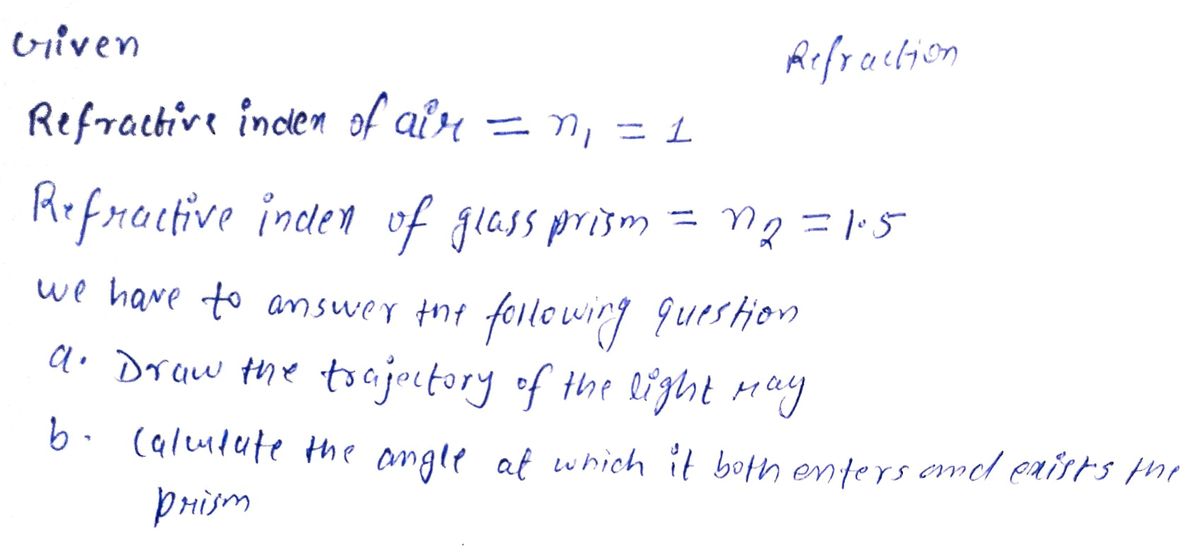 Given
Refraction
Refractive index of air = n₁ = 1
Refractive index of glass prism = n₂ = 1.5
we have to answer the following question
a. Draw the trajectory of the light ray
b. Calculate the angle at which it both enters and exists the
prism